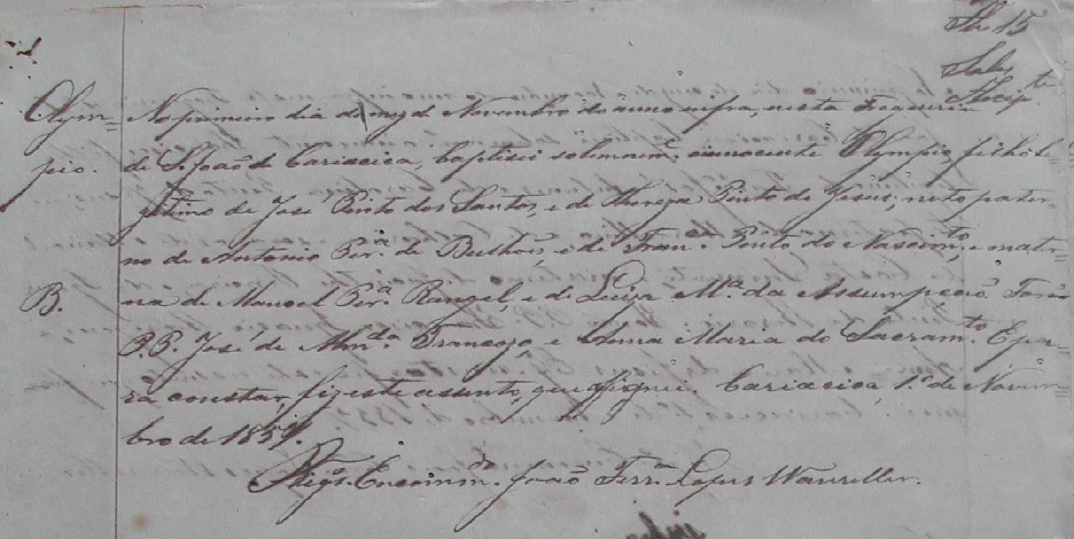 Olym=
pio.
B.
No primeiro dia do mez de Novembro do anno infra, nesta Freguezia
de S. João de Cariacica, baptisei solemnem.e o innocente Olympio, filho le=
gitimo de José Pinto dos Santos, e de Thereza Pinto de Jesus; neto pater=
no de Antonio Per.a de Bulhões e de Fran.ca Pinto do Nascim.to, e mater=
na de Manoel Per.a Rangel, e de Luiza M.a da Assumpção. Forão
P.P. José de Alm.da Trancozo, e Anna Maria do Sacram.to. E pa=
ra constar, fiz este assento, que assignei. Cariacica, 1.o de Novem=
bro de 1857.
Encom.do João Ferr.a Lopes Wanzeller.